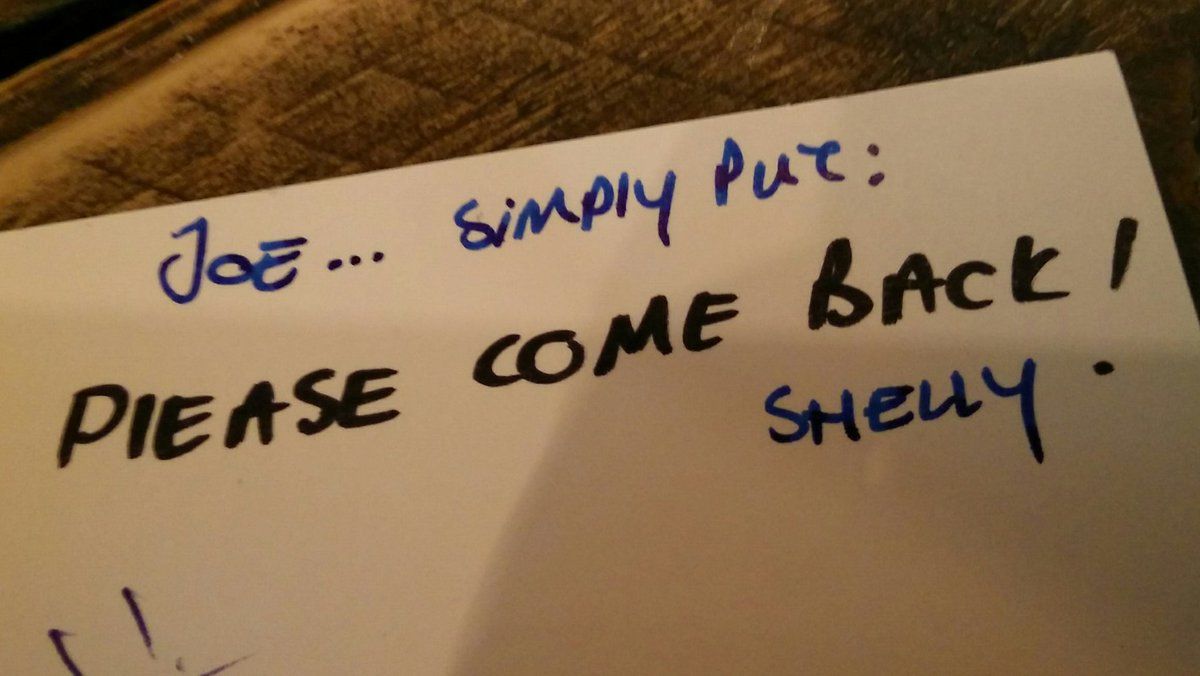 JOE... SIMPLY PUT:
PLEASE COME BACK!
SHELLY